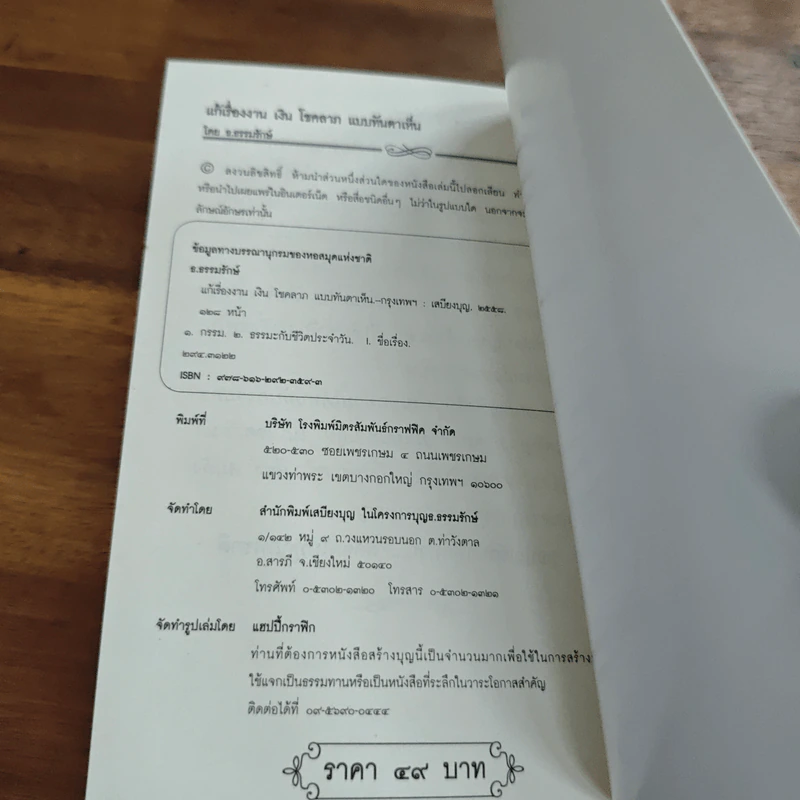 แก้เรื่องงาน เงิน โชคลาภ แบบทันตาเห็น
โดย ธ.ธรรมรักษ์
© สงวนลิขสิทธิ์ ห้ามนำส่วนหนึ่งส่วนใดของหนังสือเล่มนี้ไปลอกเลียน
หรือนำไปเผยแพร่ในอินเตอร์เน็ต หรือสื่อชนิดอื่นๆ ไม่ว่าในรูปแบบใด
ลักษณ์อักษรเท่านั้น
ข้อมูลทางบรรณานุกรมของหอสมุดแห่งชาติ
ธ.ธรรมรักษ์
แก้เรื่องงาน เงิน โชคลาภ แบบทันตาเห็น.--กรุงเทพฯ : เสบียงบุญ, ๒๕๕๘.
๑๒๘ หน้า
๑. กรรม. ๒. ธรรมะกับชีวิตประจำวัน. I. ชื่อเรื่อง.
๒๙๔.๓๑๒๒
ISBN : ๙๗๘-๖๑๖-๒๙๒-๓๕๙-๓
พิมพ์ที่ บริษัท โรงพิมพ์มิตรสัมพันธ์กราฟฟิค จำกัด
๕๒๐-๕๓๐ ซอยเพชรเกษม ๔ ถนนเพชรเกษม
แขวงท่าพระ เขตบางกอกใหญ่ กรุงเทพฯ ๑๐๖๐๐
จัดทำโดย สำนักพิมพ์เสบียงบุญ ในโครงการบุญธ.ธรรมรักษ์
๑/๑๔๒ หมู่ ๙ ถ.วงแหวนรอบนอก ต.ท่าวังตาล
อ.สารภี จ.เชียงใหม่ ๕๐๑๔๐
โทรศัพท์ ๐-๕๓๐๒-๑๓๒๐ โทรสาร ๐-๕๓๐๒-๑๓๒๑
จัดทำรูปเล่มโดย แฮปปี้กราฟิก
ท่านที่ต้องการหนังสือสร้างบุญนี้เป็นจำนวนมากเพื่อใช้ในการสร้าง
ใช้แจกเป็นธรรมทานหรือเป็นหนังสือที่ระลึกในวาระโอกาสสำคัญ
ติดต่อได้ที่ ๐๙-๕๖๙๐-๐๔๔๔
ราคา ๔๙ บาท